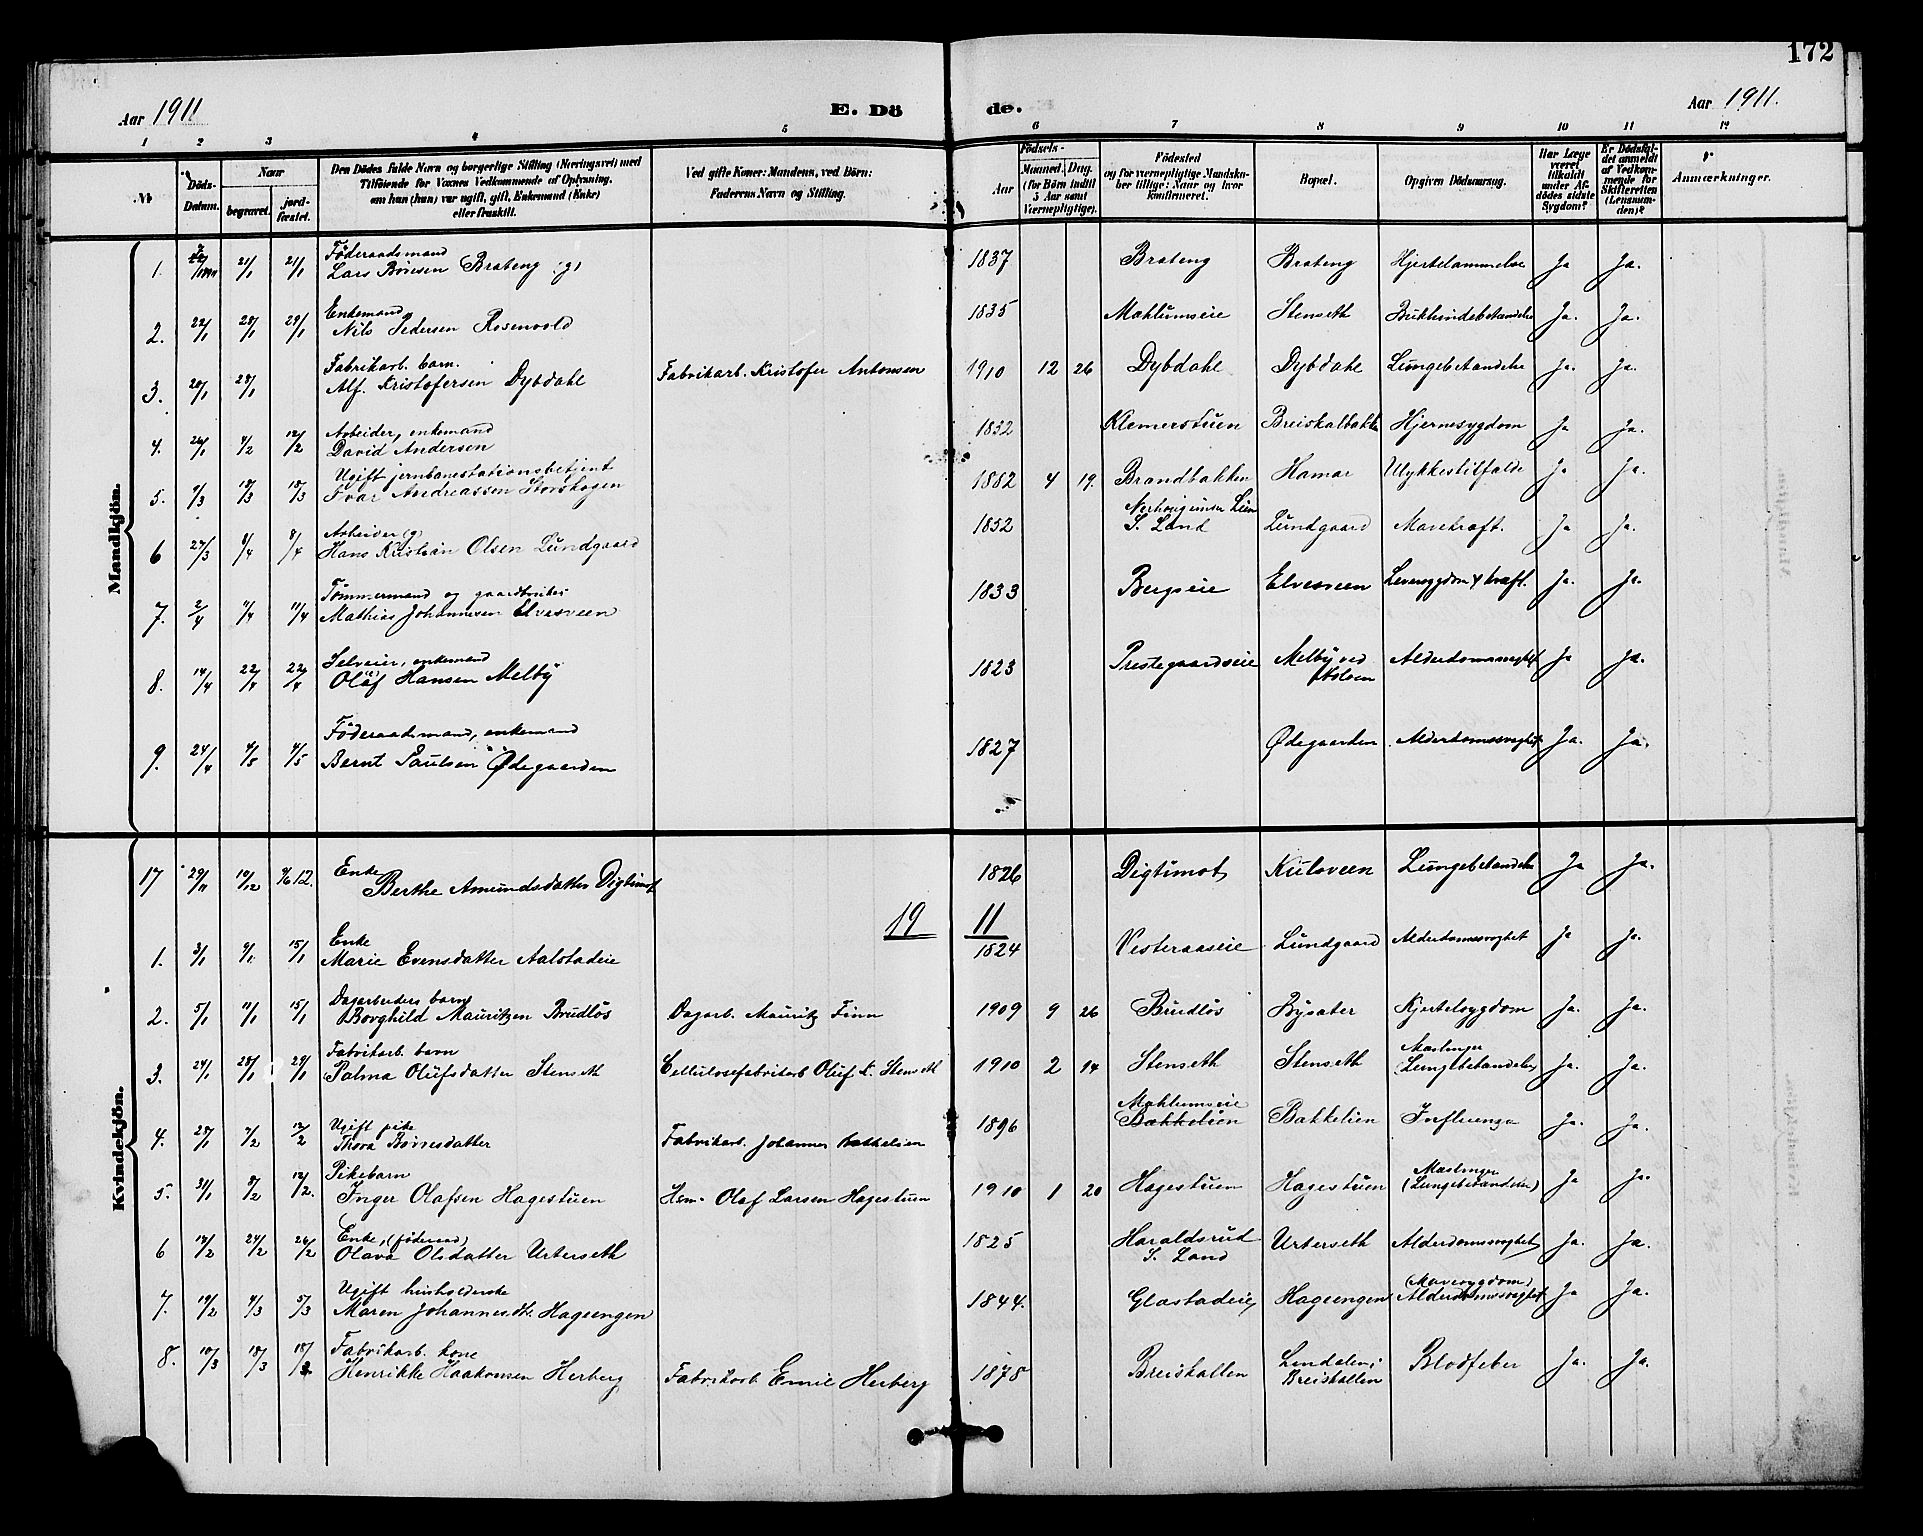 172
Aar 1911
E. Dö de.
Aar 1911.
1 2 3 4 5 6 7 8 9 10 11 12
Nr
Döds-
Datum.
Naar
begravet.
jord-
fæstet.
Den Dödes fulde Navn og borgerlige Stilling (Næringsvei) med
Tilföiende for Voxnes Vedkommende af Oplysning,
om han (hun) var ugift, gift, Enkemand (Enke)
eller fraskilt.
Ved gifte Koner: Mandens, ved Börn:
Faderens Navn og Stilling.
Födsels-
Aar
Maaned. Dag.
(for Börn indtil
5 Aar samt
Værnepligtige).
Födested
og for værnepligtige Mandska-
ber tillige: Naar og hvor
konfirmeret.
Bopæl.
Opgiven Dödsaarsag.
Har Læge
været
tilkaldt
under Af-
dödes sidste
Sygdom?
Er Dödsfal-
det anmeldt
af Vedkom-
mende for
Skifteretten
(Lensman-
den)?
Anmærkninger.
Mandkjön.
Föderaadsmand
1. 21/1 21/1 Lars Böresen Brateng g. 1837 Brateng Brateng Hjertelammelse Ja Ja.
Enkemand
2. 22/1 28/1 29/1 Nils Pedersen Rosenvold 1835 Mæhlumseie Stenseth Bukhindebetændelse Ja. Ja.
Fabrikarb. barn.
3. 20/1 28/1 Alf. Kristofersen Dybdahl Fabrikarb. Kristofer Antonsen 1910 12 26 Dybdahl Dybdahl Lungebetændelse Ja. Ja.
Arbeider, enkemand
4. 26/1 4/2 12/2 David Andersen 1832 Klemerstuen Breiskalbakk. Hjernesygdom Ja Ja.
Ugift jernbanestationsbetjent
5. 9/3 18/3 18/3 Ivar Andreassen Storskogen 1882 4 19. Brandbakken Hamar Ulykkestilfælde Ja Ja.
Arbeider g
6 27/3 8/4 8/4 Hans Kristian Olsen Lundgaard 1852 S. Land Lundgaard Mavekræft. Ja Ja.
Tömmermand og gaardbruker
7. 2/4 11/4 11/4 Mathias Johannesen Elvesveen 1833 Bergseie Elvesveen Leversygdom kræft. Ja. Ja.
Selveier, enkemand
8. 14/4 22/4 22/4 Oluf Hansen Melby 1823 Prestegaardseie Melby ved Alderdomssvaghet Ja Ja.
Föderaadsmand, enkemand
9. 24/4 4/5 4/5 Bernt Paulsen Ödegaarden 1827 Ødegaarden Alderdomssvaghet Ja. Ja.
Kvindekjön.
Enke
17 29/11 10/12 12. Berthe Amundsdatter Digtimot 1826 Digtimot Kulsveen Lungebetændelse Ja Ja.
19 11
Enke
1. 3/1 9/1 15/1 Marie Evensdatter Aalstadeie 1824 Vesteraaseie Lundgaard Alderdomssvaghet Ja Ja.
Dagarbeiders barn
2. 5/1 11/1 15/1 Borghild Mauritzen Brudlös Dagarb. Mauritz Finn 1909 9 26 Brudlös Bysæter Kjertelsygdom Ja. Ja.
Fabrikarb. barn Mæslinger
3. 24/1 28/1 29/1 Palma Olufsdatter Stenseth Cellulosefabrikarb Oluf K. Stenseth 1910 2 14 Stenseth Stenseth (Lungebetændelse) Ja. Ja.
Ugift pike Mæhlumseie
4. 28/1 7/2 12/2 Thora Börresdatter Fabrikarb. Johannes Bakkelien 1896 Bakkelien Bakkelien Influenza Ja. Ja.
Pikebarn Mæslinger
5. 31/1 8/2 12/2. Inger Olafsen Hagestuen Hsm. Olaf Larsen Hagestuen 1910 1 20 Hagestuen Hagestuen (Lungebetændelse) Ja Ja.
Enke, (föderaad)
6 18/2 24/2 26/2 Olava Olsdatter Urterseth 1825 Haraldsrud S. Land Urterseth Alderdomssvaghet Ja. Ja.
Ugift husholderske (Mavesygdom)
7. 19/2 4/3 5/3 Maren Johannesdtr. Hageengen 1844. Glæstadeie Hageengen Alderdomssvaghet Ja Ja.
Fabrikarb. kone
8. 10/3 18/3 18/3 Henrikke Haakonsen Herberg Fabrikarb Emil Herberg 1878 Breiskallen Lindalen i Breiskallen Blodfeber Ja. Ja.